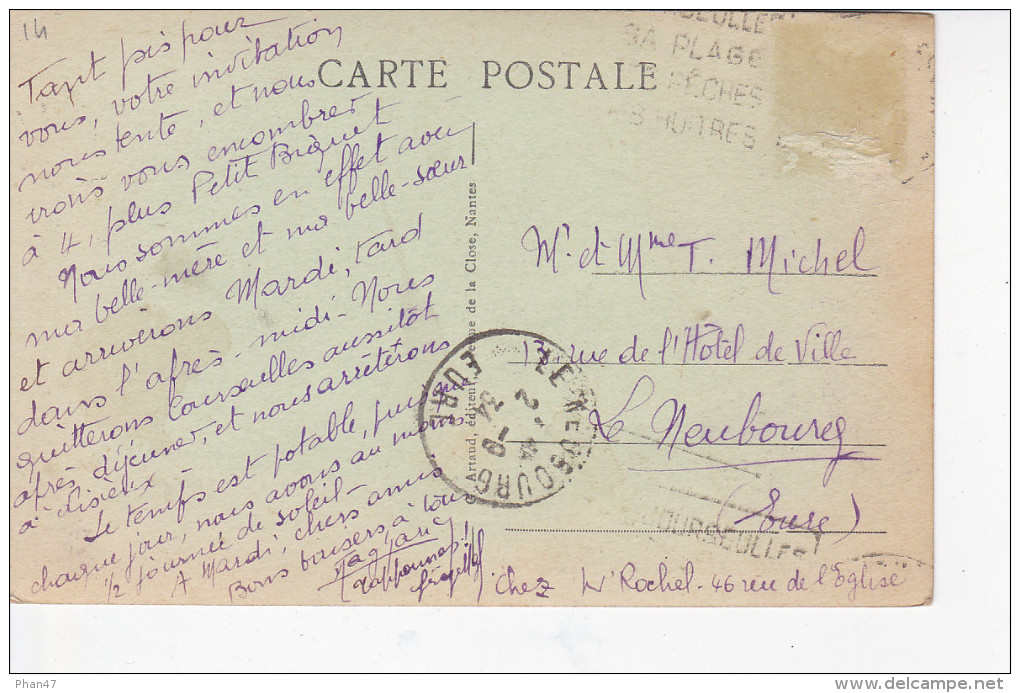 14
Tant pis pour
vous, votre invitation
nous tente, et nous
irons vous encombrer
à 4, plus Petit Biquet
Nous sommes en effet avec
ma belle-mère et ma belle-sœur
et arriverons Mardi, tard
dans l'après-midi - Nous
quitterons Courseulles aussitôt
après déjeuner, et nous arrêterons
à Lisieux
Le temps est potable, puisque
chaque jour, nous avons au moins
1/2 journée de soleil -
A Mardi, chers amis
Bons baisers à tous
CARTE POSTALE
G. Artaud, éditeur, de la Close, Nantes
SA PLAGE
PÊCHES
HUITRES
Mr et Mme T. Michel
13 rue de l'Hôtel de Ville
Le Neubourg
(Eure)
LE NEUBOURG
EURE
34
COURSEULLES
Chez Mr Rochel - 46 rue de l'Eglise
Phan47
delcampe.net